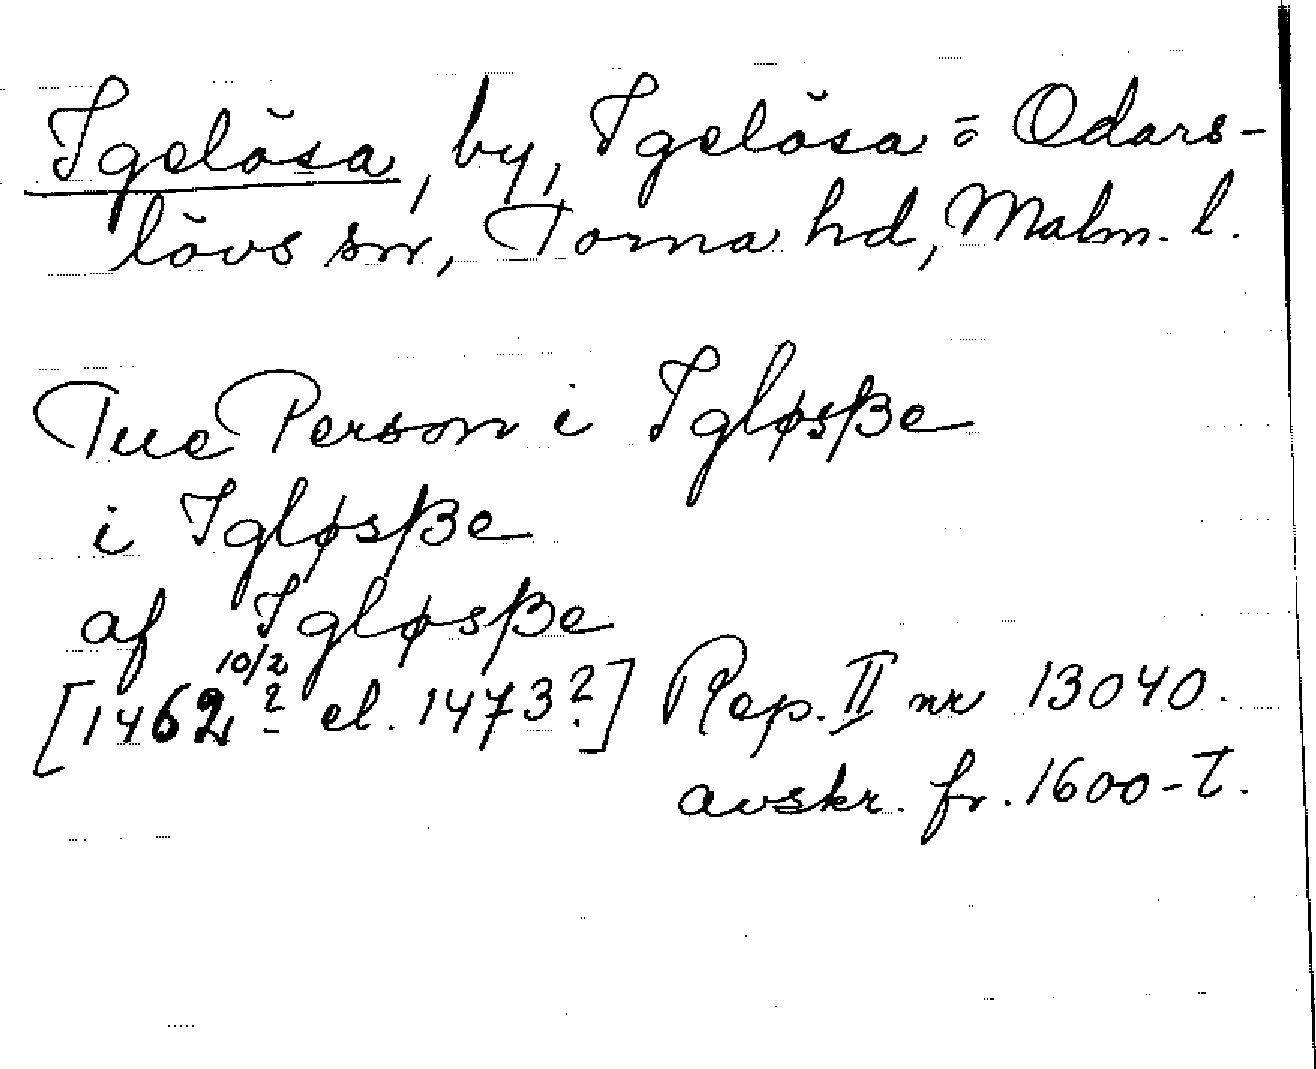 Igelösa, by, Igelösa = Odars-
lövs sn, Torna hd, Malm. l.
Tue Person i Igløsße
i Igløsße
af Igløsße
[1462 10/2 ? el. 1473?] Rep. II nr 13040.
avskr. fr. 1600-t.